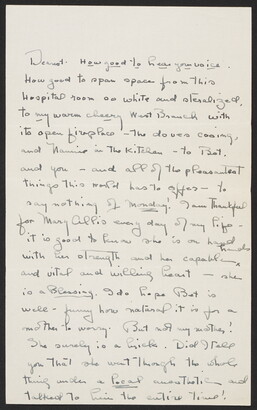 Dearest - How good to hear your voice.
How good to span space from this
Hospital room so white and steralized,
to my warm cheery West Branch with
its open fireplace - the doves cooing,
and Nannie in the Kitchen - to Bob,
and you - and all of the pleasantest
things this world has to offer - to
say nothing of Monday! I am thankful
for Mary Allis every day of my life -
it is good to know she is on hand
with her strength and her capable hands
and vital and willing heart - she
is a Blessing. I do hope Bob is
well - funny how natural it is for a
mother to worry. But not my mother!
She surely is a brick. Did I tell
you that she went through the whole
thing under a local anaesthetic and
talked to him the entire time!